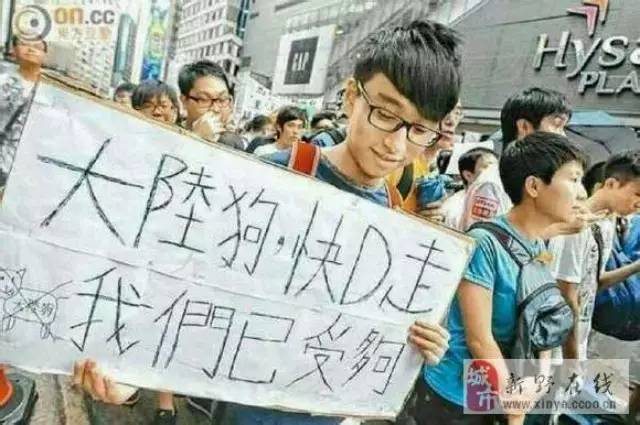 on.cc
東方互動
GAP
Hysa
PLA
大陸狗,快D走
我們已受夠
大陸狗
城市
新野在线
www.xinya.ccoo.cn